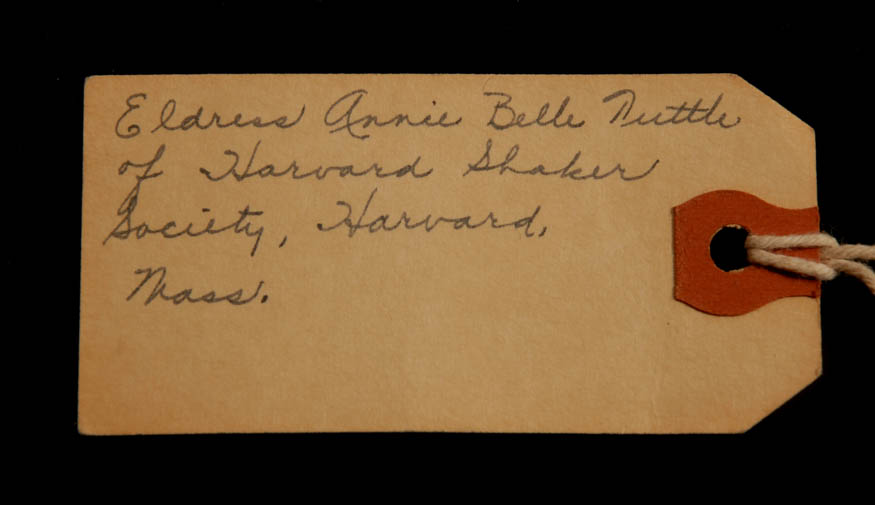 Eldress Annie Belle Tuttle
of Harvard Shaker
Society, Harvard,
Mass.